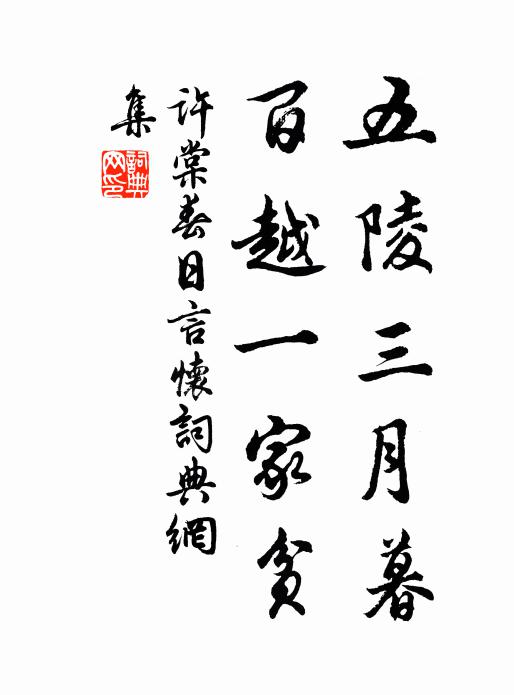 五陵三月暮
百越一家貧
許棠春日言懷詞典網
集
詞典
网印